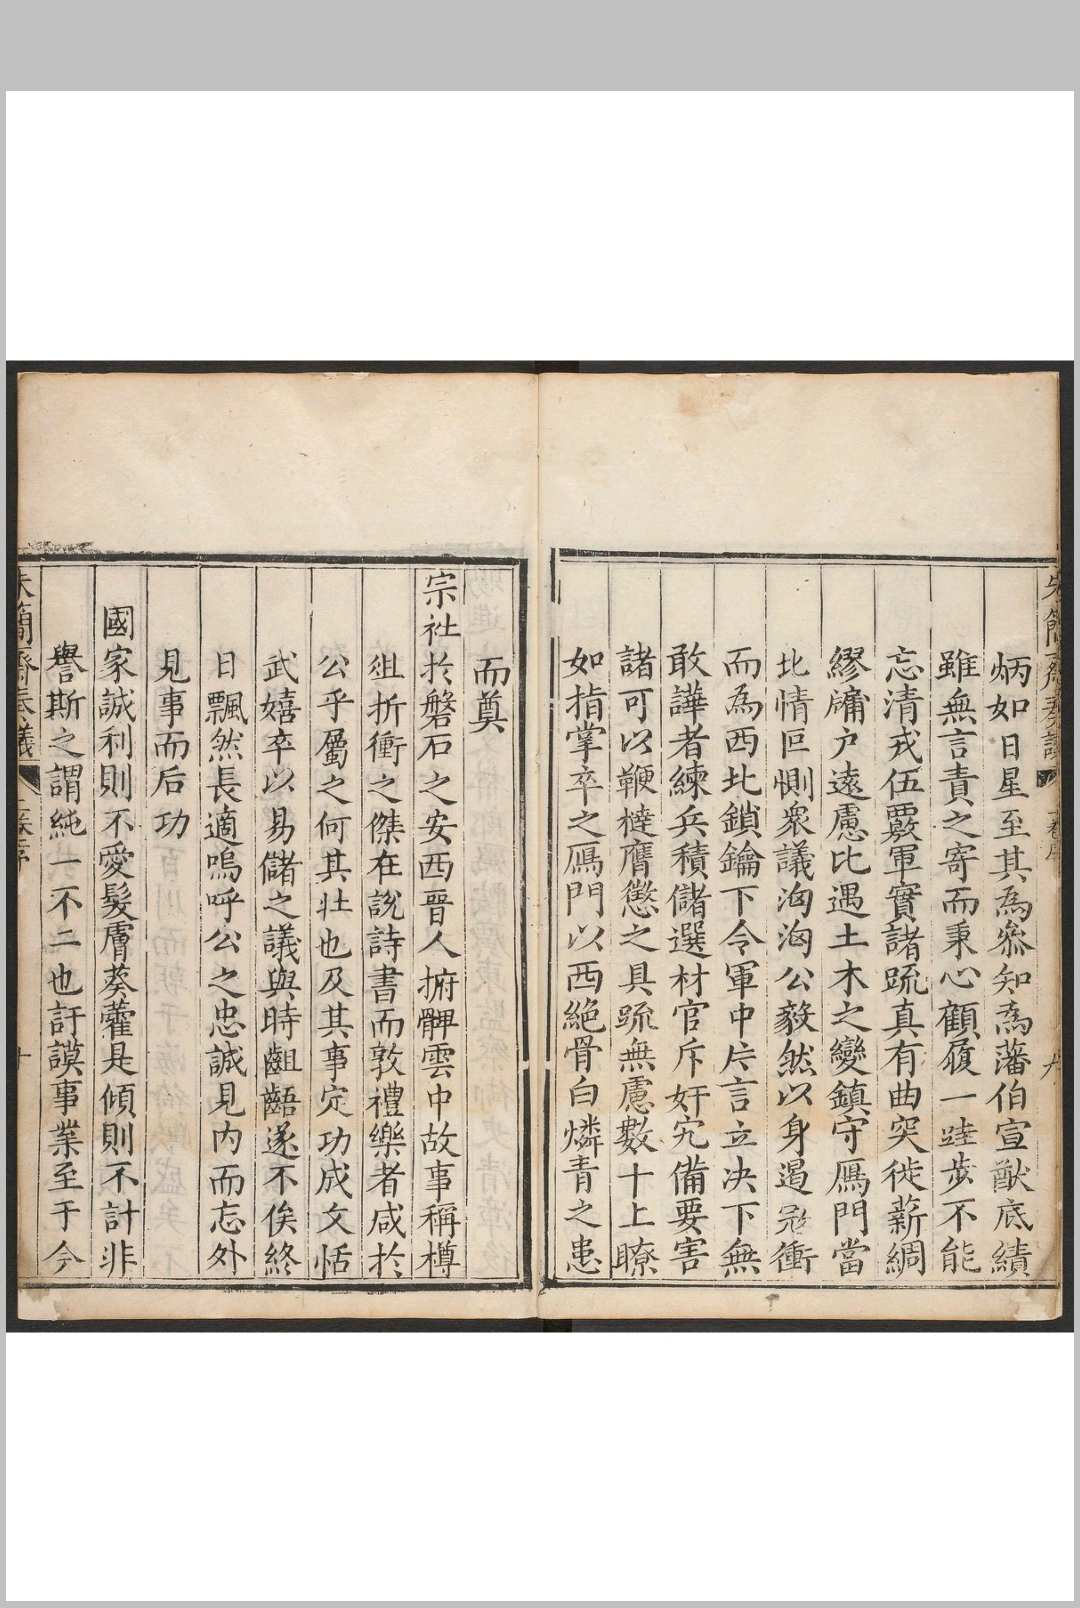 炳如日星至其為叅知為藩伯宣猷底績
雖無言責之寄而秉心顧履一蹉步不能
忘清戎伍覈軍實諸疏真有曲突徙薪綢
繆牖户遠慮比遇土木之變鎮守鴈門當
北情叵惻衆議洶洶公毅然以身遏衝
而為西北鎖鑰下令軍中片言立决下無
敢譁者練兵積儲選材官斥奸宄備要害
諸可以鞭撻膺懲之具疏無慮數十上瞭
如指掌卒之鴈門以西絶骨白燐青之患
而奠
宗社於磐石之安西晉人搢髀雲中故事稱樽
俎折衝之傑在説詩書而敦禮樂者咸於
公乎屬之何其壮也及其事定功成文恬
武嬉卒以易儲之議與時齟齬遂不俟終
日飄然長適嗚呼公之忠誠見内而忘外
見事而后功
國家誠利則不愛髮膚葵藿是傾則不計非
譽斯之謂純一不二也訏謨事業至于今
簡齋奏議